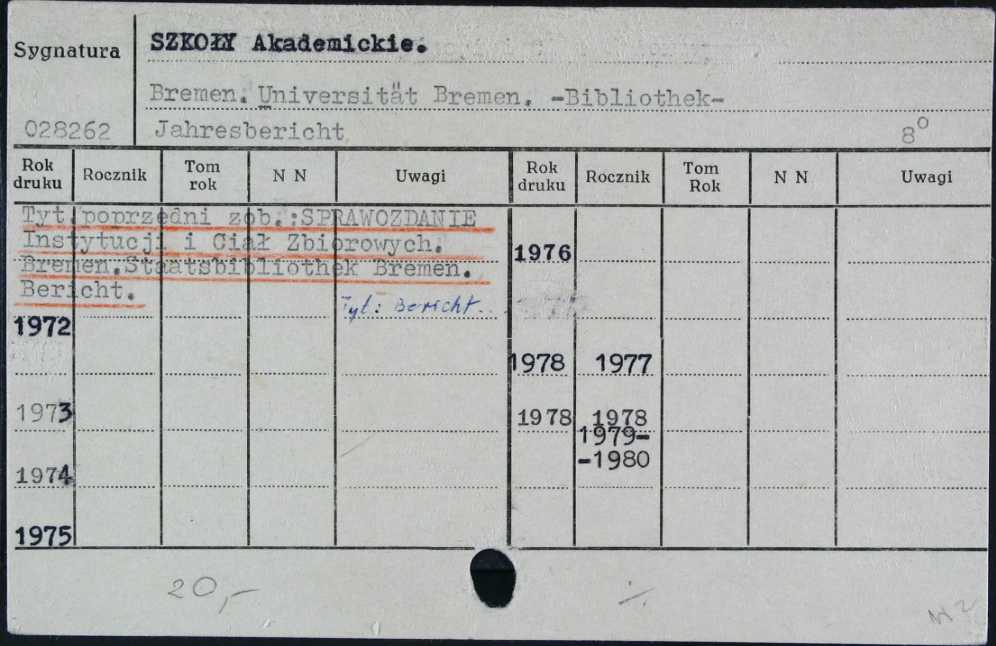 Sygnatura
SZKOŁY Akademickie.
Bremen. Universität Bremen. -Bibliothek-
028262 Jahresbericht 8°
Rok druku Rocznik Tom rok N N Uwagi Rok druku Rocznik Tom Rok N N Uwagi
Tyt.poprzedni zob.:SPRAWOZDANIE
Instytucji i Ciał Zbiorowych.
1976
Bremen.Staatsbibliothek Bremen.
Bericht.
Tyt: Bericht.
1972
1978 1977
1973 1978 1978
1979-
-1980
1974
1975
20,-